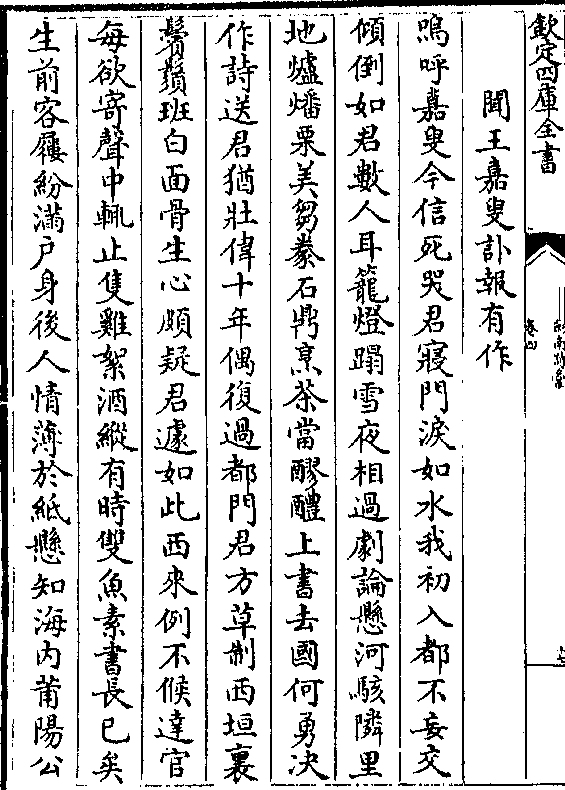 欽定四庫全書
劍南詩槀
卷四
聞王嘉叟訃報有作
嗚呼嘉叟今信死哭君寢門淚如水我初入都不妄交
傾倒如君數人耳籠燈蹋雪夜相過劇論懸河駭隣里
地爐燔栗美芻豢石鼎烹茶當醪醴上書去國何勇決
作詩送君猶壯偉十年偶復過都門君方草制西垣裏
鬢鬚班白面骨生心頗疑君遽如此西來例不候達官
每欲寄聲中輒止隻雞絮酒縱有時雙魚素書長已矣
生前客屨紛滿户身後人情薄於紙懸知海内莆陽公